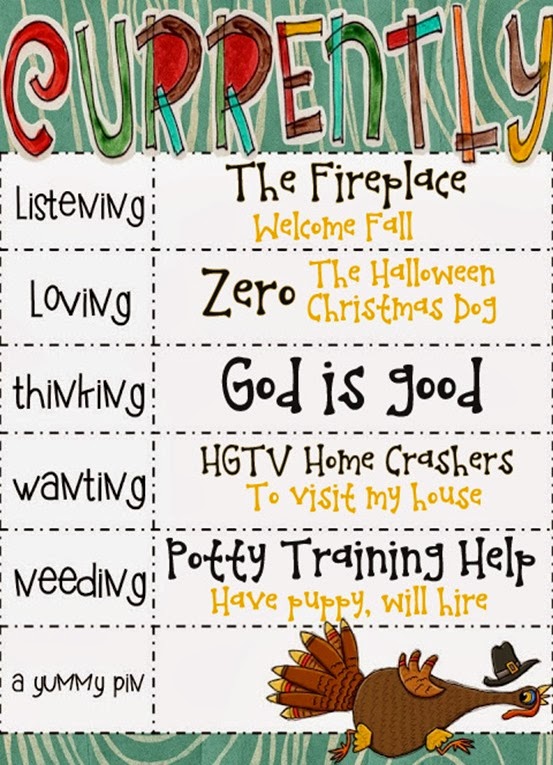 CURRENTLY
Listening
The Fireplace
Welcome Fall
Loving
Zero
The Halloween
Christmas Dog
thinking
God is good
wanting
HGTV Home Crashers
To visit my house
needing
Potty Training Help
Have puppy, will hire
a yummy pin